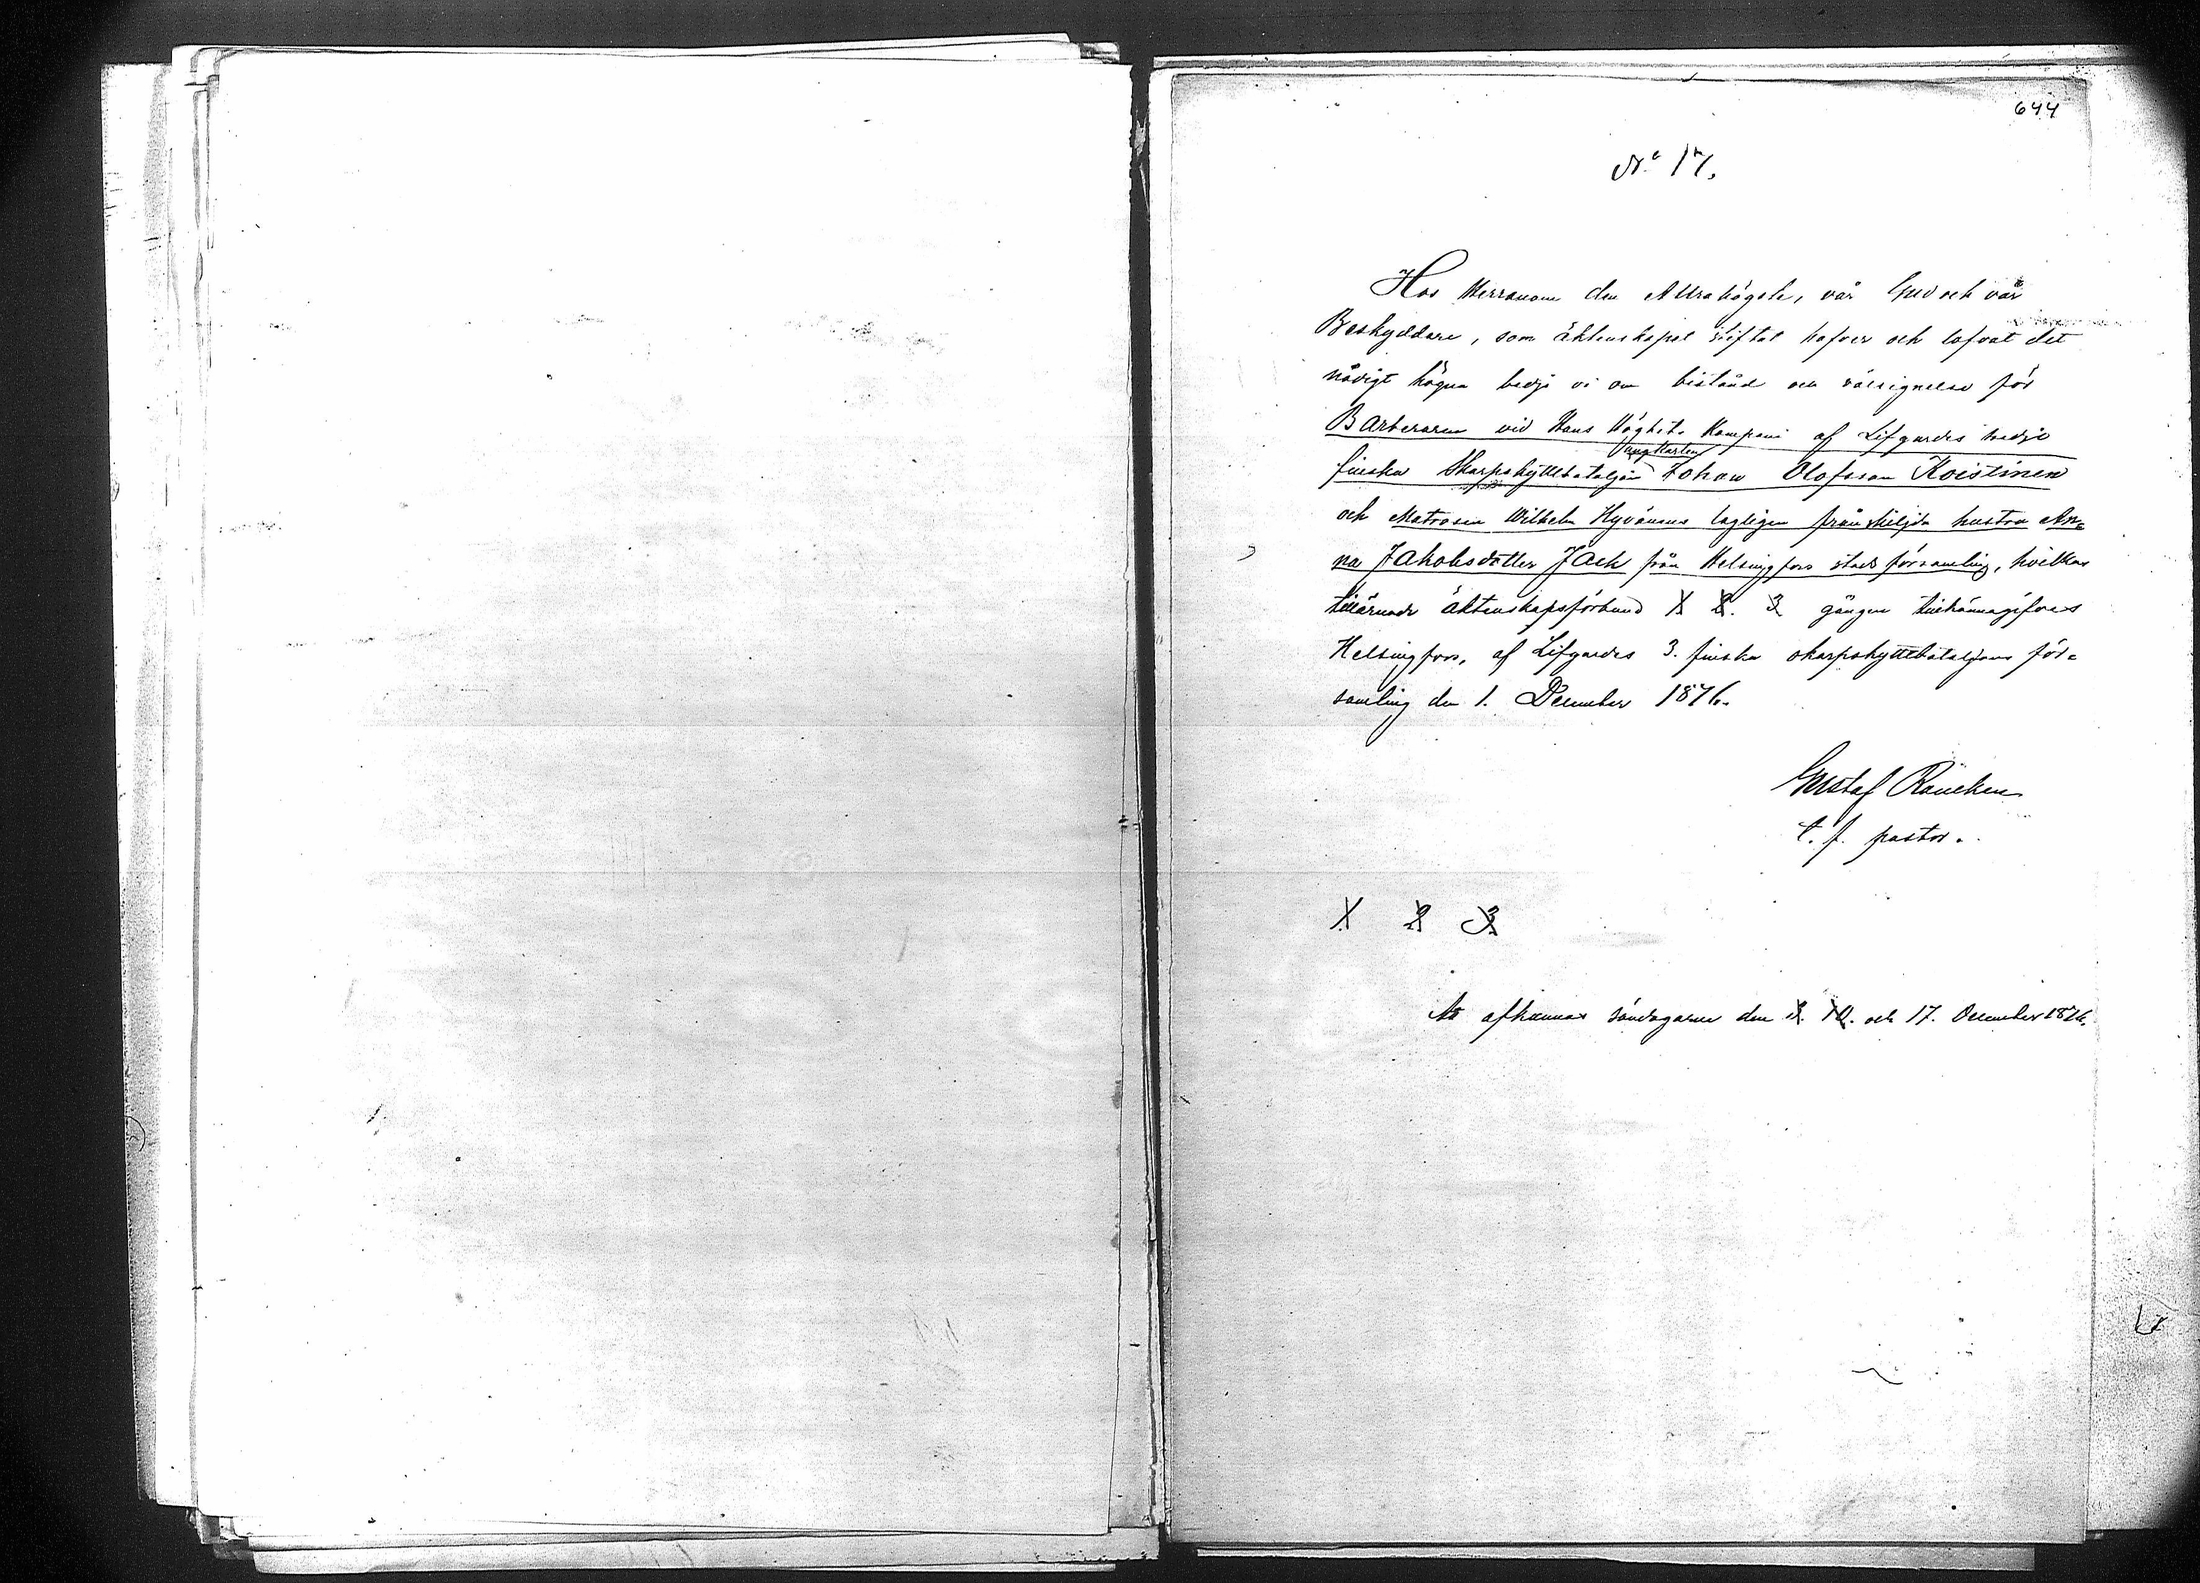 644
No 17.
Hos Herranom den Allrahögste, vår Gud och vår
Beskyddare, som äktenskapet stiftat hafver och lofvat det
nådigt hägna bedje vi om bistånd och välsignelse för
Barberaren vid Hans Höghets Kompani af Lifgardes tredje
finska Skarpskyttebataljon ungkarlen Johan Olofsson Koistinen
och Matrosen Wilhelm Hyvönens lagligen frånskiljda hustru An=
na Jakobsdotter Jack från Helsingfors stads församling, hvilkas
tillärnade äktenskapsförbund 1 2. 3 gången tillkännagifves
Helsingfors, af Lifgardes 3. finska skarpskyttebataljons för=
samling den 1. December 1876.
Gustaf
t. f. pastor.
1. 2. 3.
Att afkunnas söndagarne den 3. 10. och 17. December 1876.